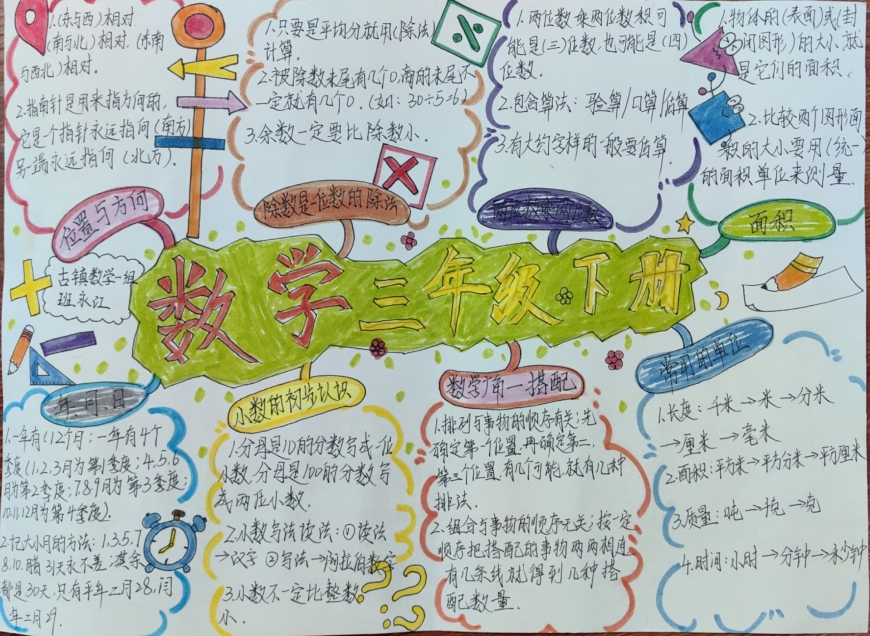 1.(东与西)相对.
(南与北)相对.(东南
与西北)相对.
2.指南针是用来指方向的,
它是个指针永远指向(南方)
另一端永远指向(北方).
位置与方向
1.只要是平均分就用(除法)
计算.
2.被除数末尾有几个0,商的末尾不
一定就有几个0.(如:30÷5=6)
3.余数一定要比除数小.
除数是一位数的除法
1.两位数乘两位数积可
能是(三)位数,也可能是(四)
位数.
2.包含算法:验算/口算/估算
3.有大约字样的一般要估算.
1.物体的(表面)或(封
闭图形)的大小,就
是它们的面积.
2.比较两个图形面
积的大小要用(统一
的面积单位来测)量.
面积
数学三年级下册
古镇数学一组
年、月、日
1.一年有12个月:一年有4个
季度(1.2.3月为第1季度;4.5.6
月为第2季度;7.8.9月为第3季度;
10.11.12月为第4季度).
2.记大小月的方法:1.3.5.7
8.10.腊31天永不差;其余
都是30天.只有平年二月28,闰
年二月29.
小数的初步认识
1.分母是10的分数写成一位
小数,分母是100的分数写
成两位小数.
2.小数写法读法:①读法
→汉字 ②写法→阿拉伯数字
3.小数不一定比整数
小.
数学广角——搭配
1.排列与事物的顺序有关:先
确定第一个位置,再确定第二、
第三个位置,有几个可能,就有几种
排法.
2.组合与事物的顺序无关:按一定
顺序把搭配的事物两两相连
有几条线就得到几种搭
配数量.
常用的单位
1.长度:千米→米→分米
→厘米→毫米
2.面积:平方米→平方分米→平方厘米
3.质量:吨→千克→克
4.时间:小时→分钟→秒钟